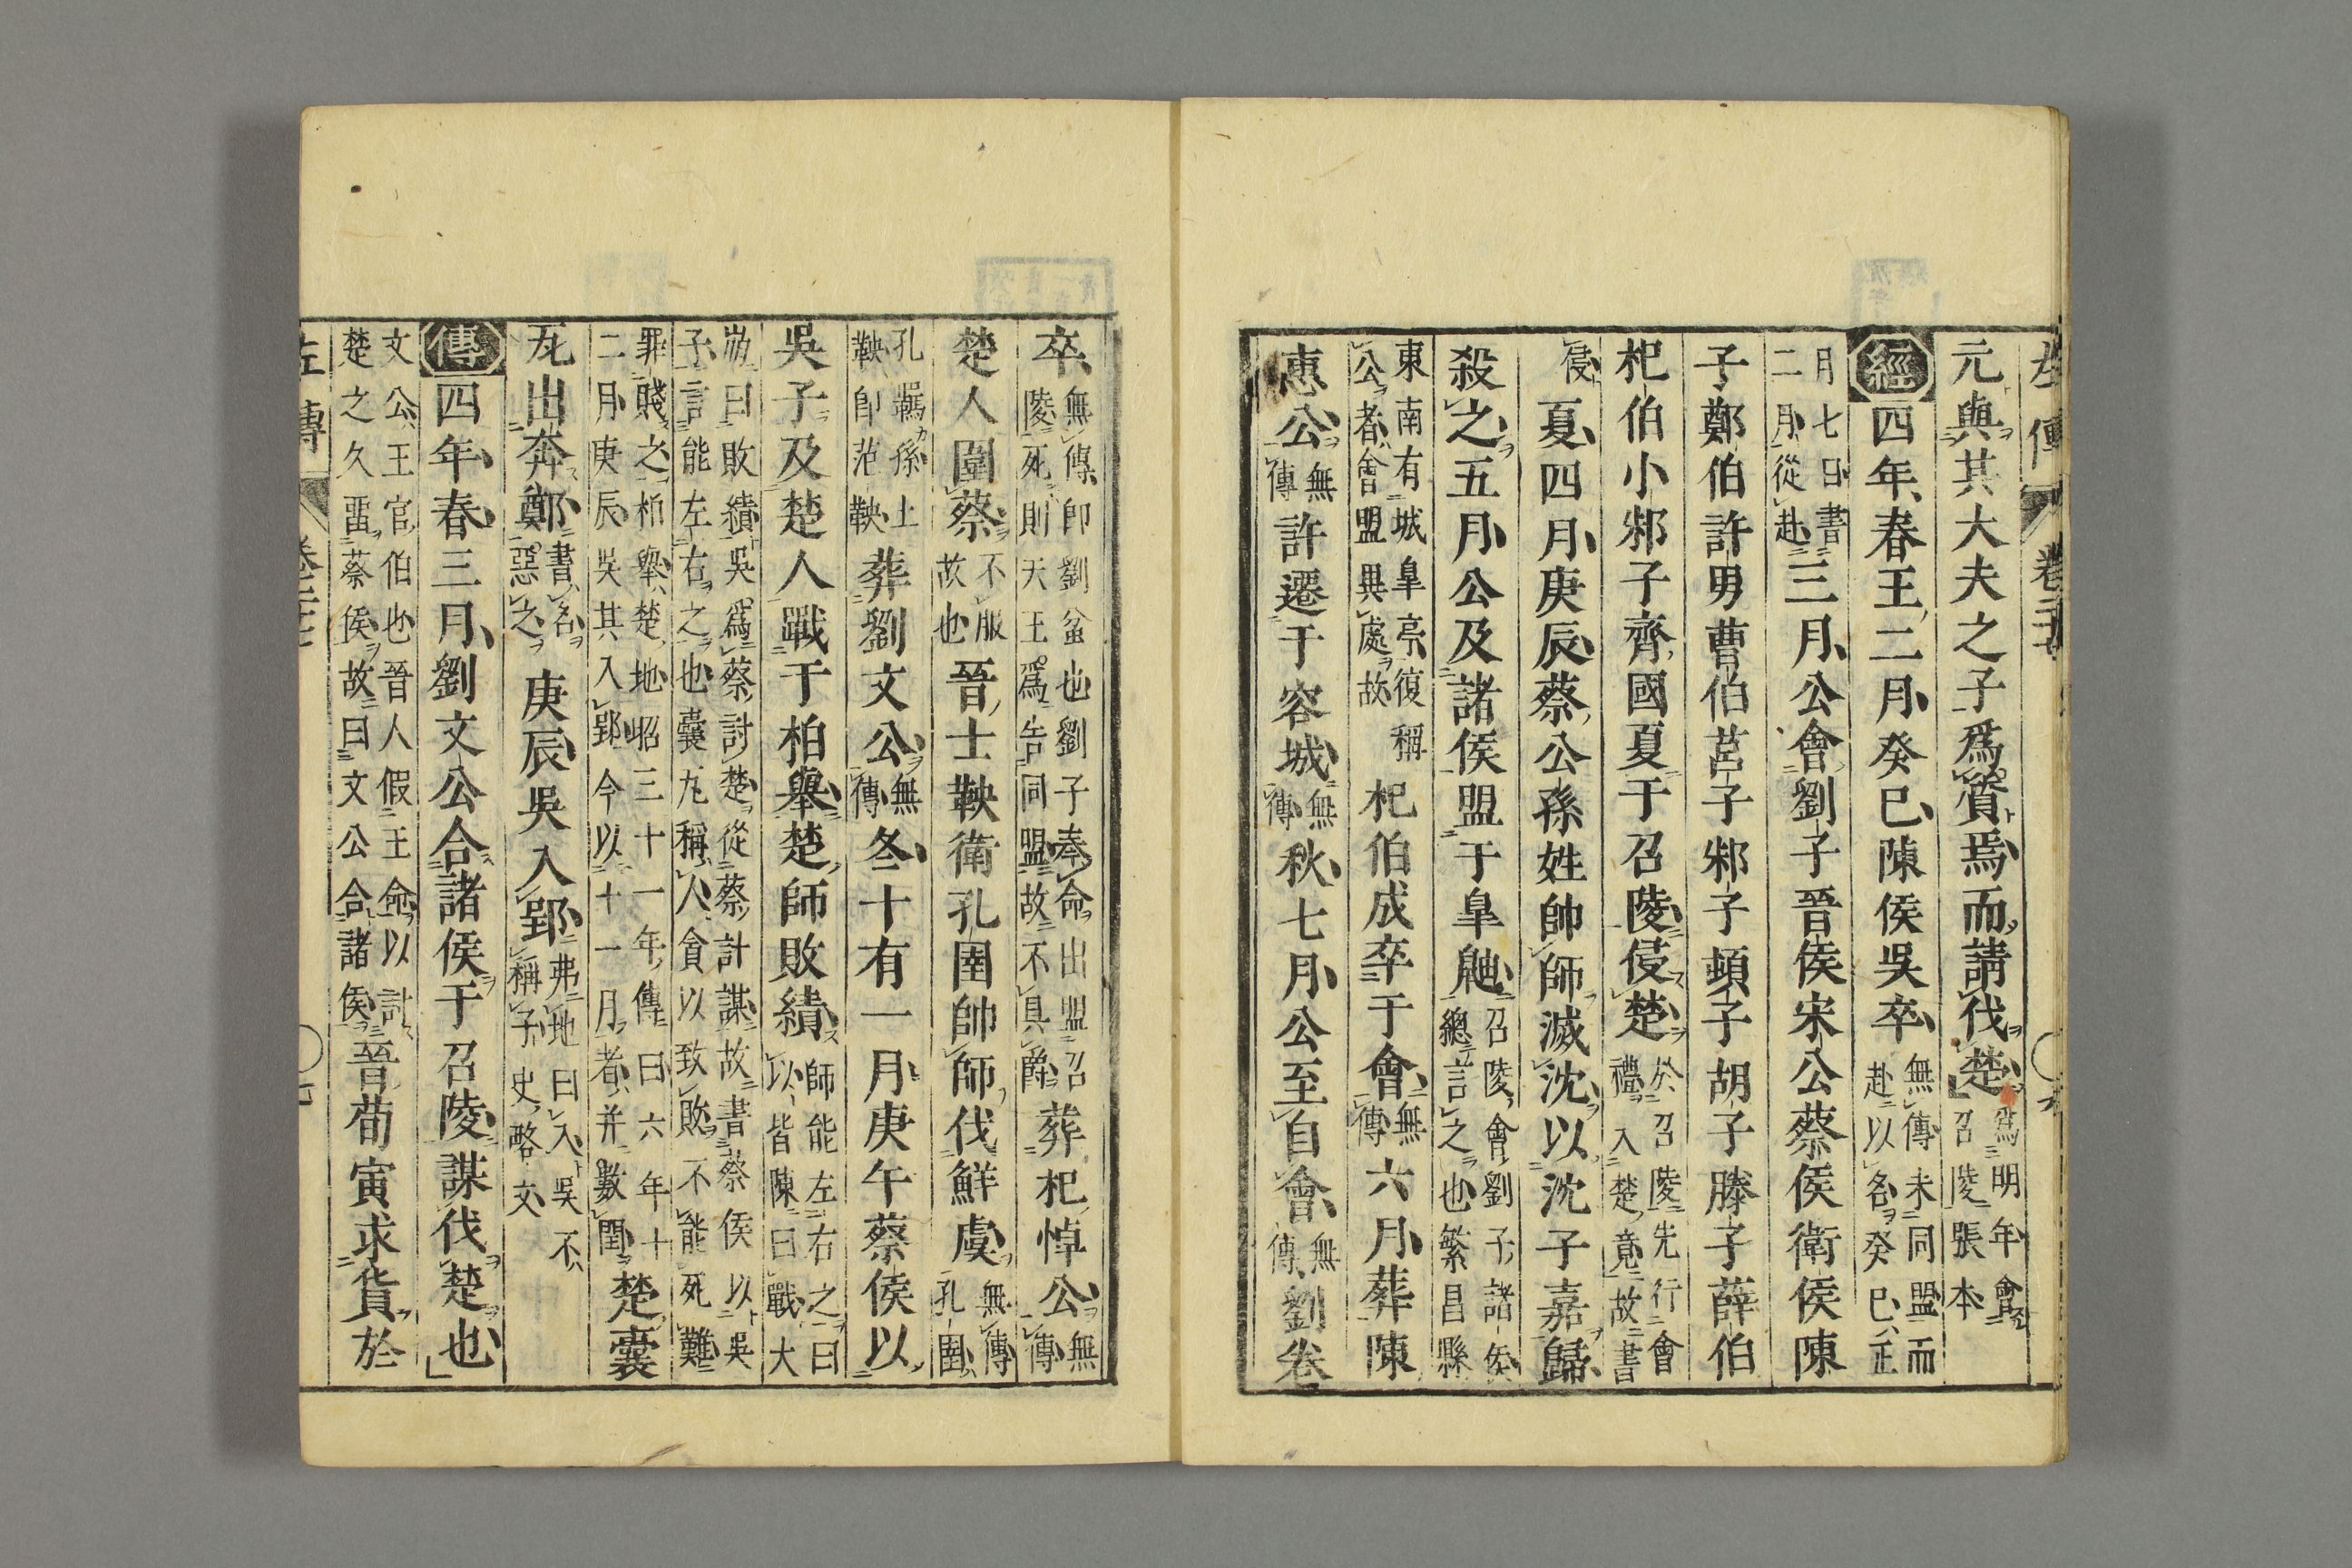 左傳 卷二十七
元與其大夫之子爲質焉而請伐楚爲明年會召陵張本
經四年春王二月癸巳陳侯吳卒無傳未同盟而赴以名癸巳正
月七日書二月從赴三月公會劉子晉侯宋公蔡侯衛侯陳
子鄭伯許男曹伯莒子邾子頓子胡子滕子薛伯
杞伯小邾子齊國夏于召陵侵楚於召陵先行會禮入楚竟故書
侵夏四月庚辰蔡公孫姓帥師滅沈以沈子嘉歸
殺之五月公及諸侯盟于皐鼬召陵會劉子諸侯總言之也繁昌縣
東南有城皐亭復稱公者會盟異處故杞伯成卒于會無傳六月葬陳
惠公無傳許遷于容城無傳秋七月公至自會無傳劉卷
卒無傳卽劉蚠也劉子奉命出盟召陵死則天王爲告同盟故不具爵葬杞悼公無傳
楚人圍蔡不服故也晉士鞅衛孔圉帥師伐鮮虞無傳孔圉
孔羈孫士鞅卽范鞅葬劉文公無傳冬十有一月庚午蔡侯以
吳子及楚人戰于柏舉楚師敗績師能左右之曰以皆陳曰戰大
崩曰敗績吳爲蔡討楚從蔡計謀故書蔡侯以吳子言能左右之也囊瓦稱人貪以致敗不能死難
罪賤之柏舉楚地昭三十一年傳曰六年十二月庚辰吳其入郢今以十一月者并數閏楚囊
瓦出奔鄭書名惡之庚辰吳入郢弗地曰入吳不稱子史略文
傳四年春三月劉文公合諸侯于召陵謀伐楚也
文公王官伯也晉人假王命以討楚之久畱蔡侯故曰文公合諸侯晉荀寅求貨於
左傳 卷二十七